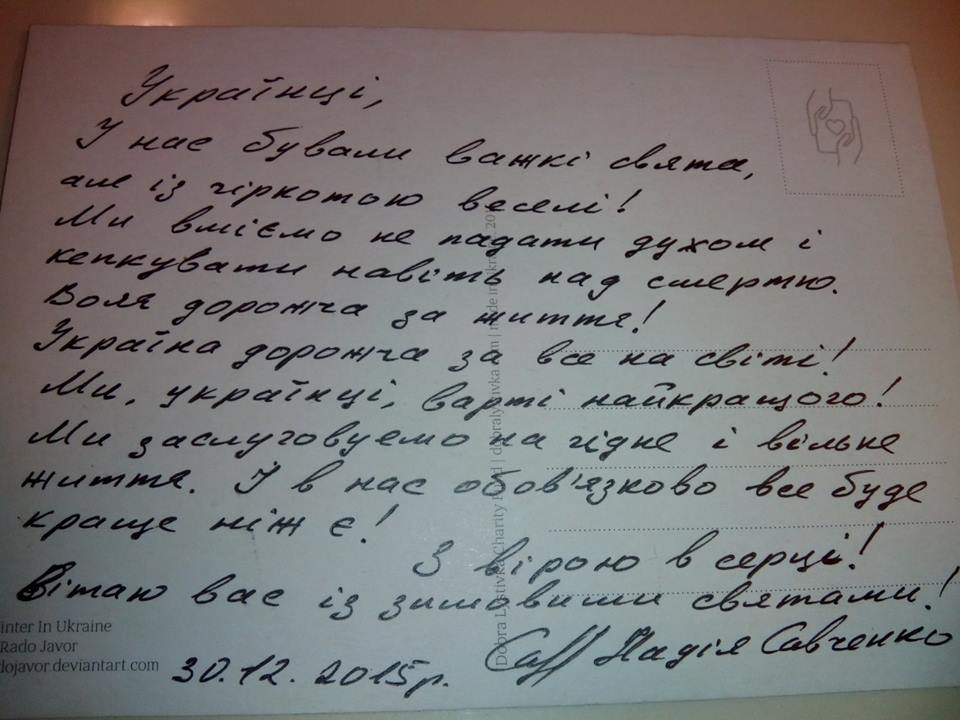 Українці,
У нас бували важкі свята,
але із гіркотою веселі!
Ми вміємо не падати духом і
кепкувати навіть над смертю.
Воля дорожча за життя!
Україна дорожча за все на світі!
Ми, українці, варті найкращого!
Ми заслуговуємо на гідне і вільне
життя. І в нас обов'язково все буде
краще ніж є!
З вірою в серці!
Вітаю вас із зимовими святами!
Надія Савченко
30.12.2015р.
inter In Ukraine
Rado Javor
dojavor.deviantart.com
Dobra Lystivka Charity Fund | dobralystivka.com | made in Ukraine, 201